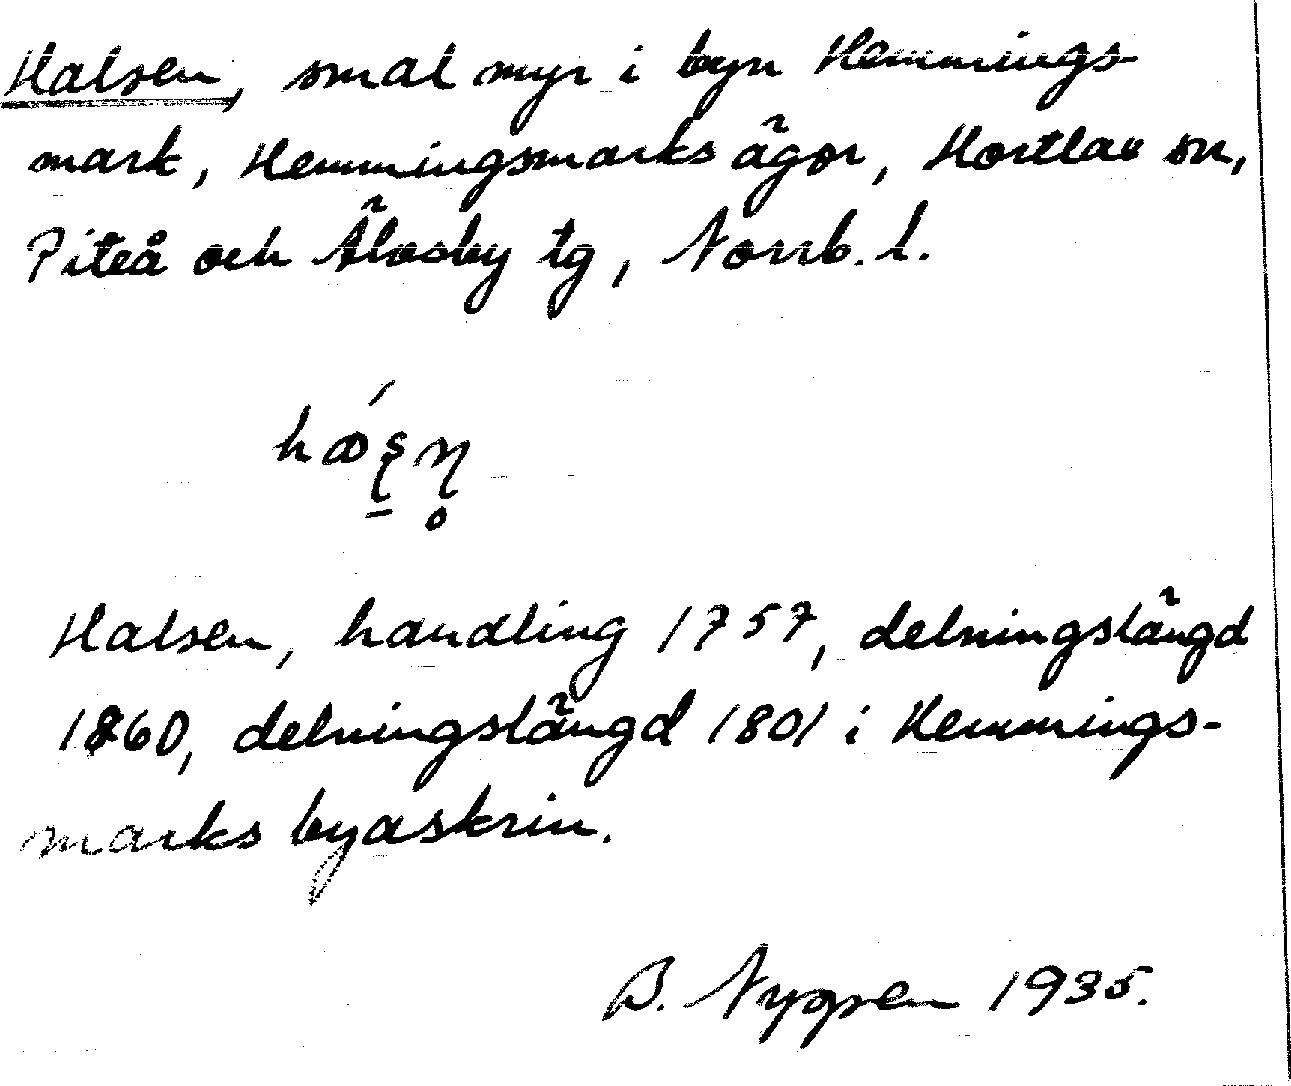 Halsen, smal myr i byn Hemmings-
mark, Hemmingsmarks ägor, Hortlax sn,
Piteå och Älvsby tg, Norrb. l.
Halsen, handling 1757, delningslängd
1860, delningslängd 1801 i Hemmings-
marks byaskrin.
B. Nygren 1935.